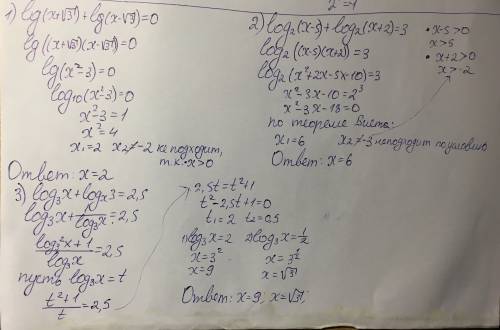 2 = 1
1) lg(x+√3)+lg(x-√3)=0
lg((x+√3)(x-√3))=0
lg(x²-3)=0
log₁₀(x²-3)=0
x²-3=1
x²=4
x₁=2 x₂≠-2 не подходит,
т.к. x>0
Ответ: x=2
2) log₂(x-5)+log₂(x+2)=3
log₂((x-5)(x+2))=3
log₂(x²+2x-5x-10)=3
x²-3x-10=2³
x²-3x-18=0
по теореме Виета:
x₁=6 x₂≠-3 не подходит по условию
Ответ: x=6
• x-5>0
x>5
• x+2>0
x>-2
3) log₃x+logₓ3=2,5
log₃x+1/log₃x=2,5
(log₃²x+1)/log₃x=2,5
пусть log₃x=t
(t²+1)/t=2,5
2,5t=t²+1
t²-2,5t+1=0
t₁=2 t₂=0,5
1) log₃x=2 2) log₃x=1/2
x=3² x=3^(1/2)
x=9 x=√3
Ответ: x=9; x=√3;